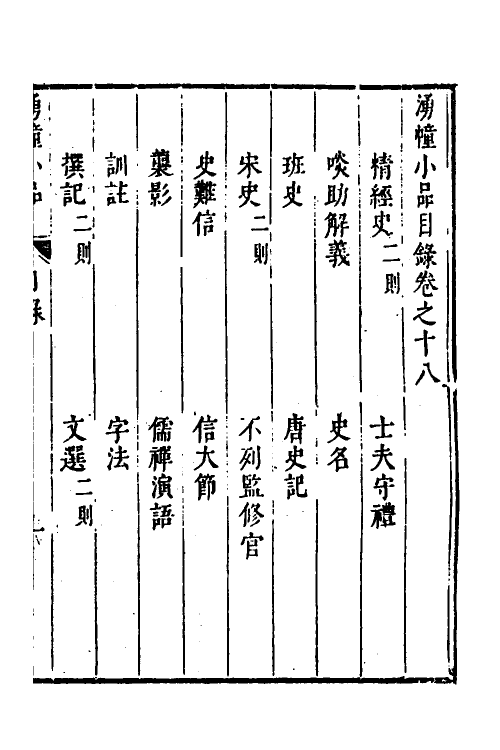 湧幢小品目錄卷之十八
精經史二則　士夫守禮
啖助解義　史名
班史　唐史記
宋史二則　不列監修官
史難信　信大節
襲影　儒禪演語
訓註　字法
撰記二則　文選二則
湧幢小品　目錄